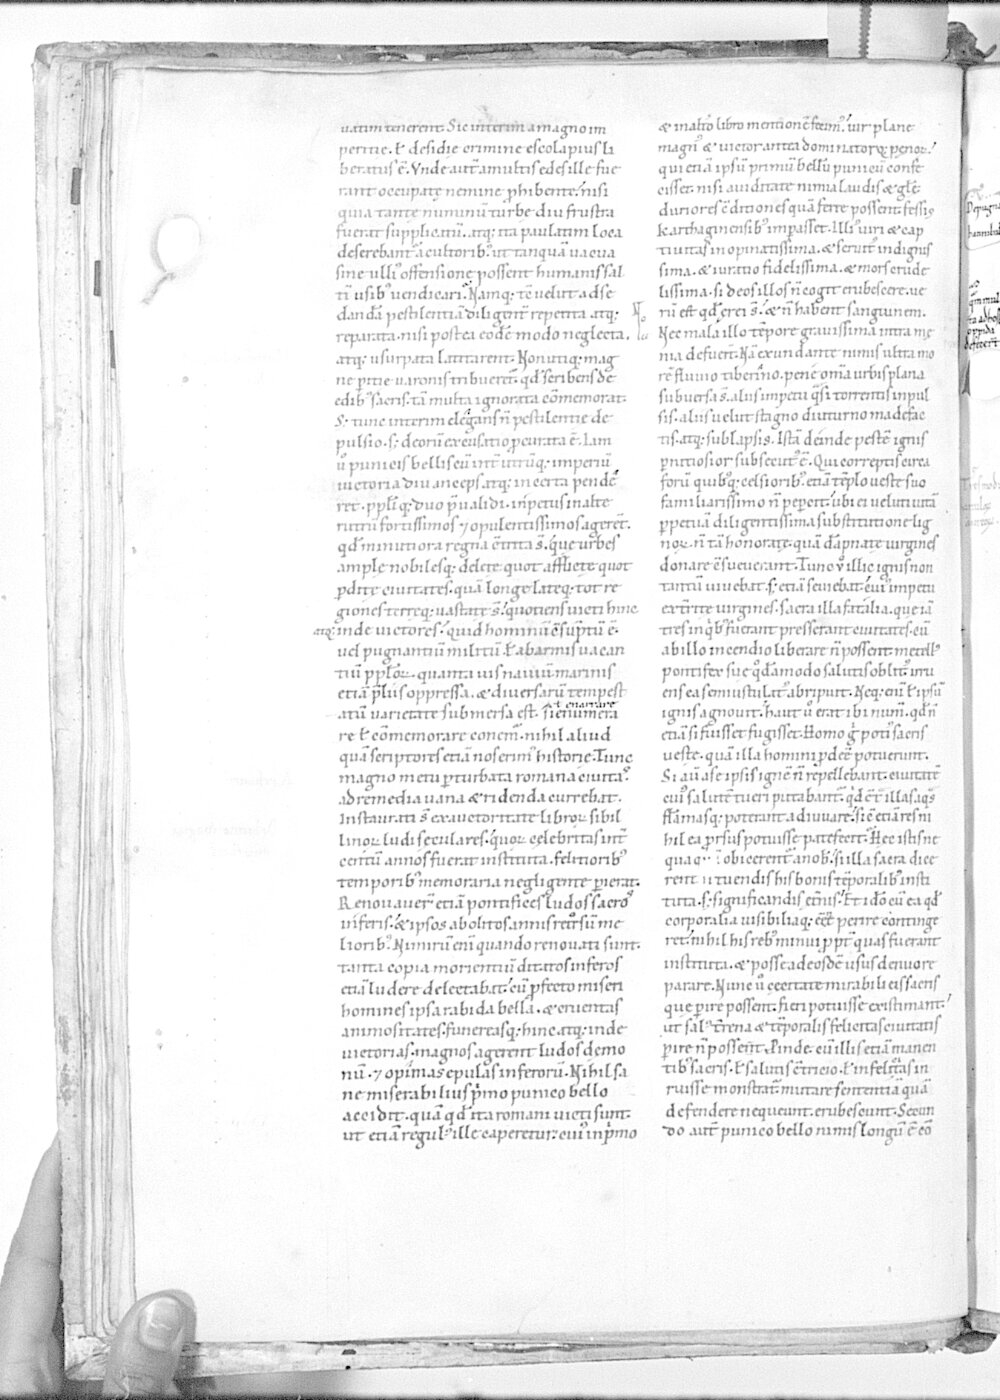 uatim tenerent. Sic interim a magno im
peritie. ł desidie crimine escolapius li
beratus ē. Vnde aut̄ a multis edes ille fue
rant occupatę nemine ꝓhibente. nisi
quia tantę numinū turbę diu frustra
fuerat supplicatū. atq; ita paulatim loca
deserebant᷑ a cultorib; ut tanquā uacua
sine ulli᷒ offensione possent humanis sal
tī usib; uendicari. Namq; tē uelut ad se
dandā pestilentiā diligent̄ repetita atq;
reparata. nisi postea eodē modo neglecta.
atq; usurpata latitarent. Non utiq; mag
ne ꝑitie uaronis tribueret᷑. qd̄ scribens de
edib; sacris. tā multa ignorata cōmemorat.
S; tunc interim elegans n̄ pestilentie de
pulsio. s; deorū excusatio ꝓcurata ē. Iam
ū punicis bellis cū int̄ utrūq; imperiū
uictoria diu anceps atq; incerta pendē
ret. ppl̄iq; duo p̄ualidi. inpetus in alte
rutrū fortissimos ⁊ opulentissimos ageret᷑.
qd̄ minutiora regna c̄trita s̄. que urbes
ample nobilesq; delete. quot afflicte quot
ꝑdite ciuitates. quā longe lateq; tot re
giones terreq; uastate s̄. quotiens uicti hinc
atq; inde uictores. quid hominū c̄sūptū ē.
uel pugnantiū militū. ł ab armis uacan
tiū ppl̄oꝝ. quanta uis nauiū marinis
etiā p̄liis oppressa. & diuersarū tempest
ł enarrare
atū uarietate submersa est. si enumera
re ł cōmemorare conem᷑. nihil aliud
quā scriptores etiā nos erim᷒ historie. Tunc
magno metu ꝑturbata romana ciuita᷒.
ad remedia uana & ridenda currebat.
Instaurati s̄ ex auctoritate libroꝝ sibil
linoꝝ ludi seculares. quoꝝ celebritas int̄
centū annos fuerat instituta. felitiorib᷒
temporib᷒ memoraria negligente ꝑierat.
Renouauer̄ etiā pontifices ludos sacro᷒
inferis. & ipsos abolitos annis retrosū me
liorib᷒. Nimirū eni quando renouati sunt.
tanta copia morientiū ditatos inferos
etiā ludere delectabat. cū ꝓfecto miseri
homines ipsa rabida bella. & cruentas
animositates. funereasq; hinc atq; inde
uictorias. magnos agerent ludos demo
nū. ⁊ opimas epulas inferorū. Nihil sa
ne miserabilius p̄mo punico bello
accidit. quā qd̄ ita romani uicti sunt.
ut etiā regul᷒ ille caperetur. cui᷒ in p̄mo
& in alt̄o libro mentionē fecim᷒. uir plane
magn᷒ & uictor antea domitorq; penoꝝ.
qui etiā ipsū primū bellū punicū confe
cisset. nisi auiditate nimia laudis & gl̄e
duriores c̄ditiones quā ferre possent. fessis
karthaginensib᷒ impasset. Illi᷒ uiri & cap
tiuitas inopinatissima. & seruit᷒ indignis
sima. & iuratio fidelissima. & mors crude
lissima. si deos illos n̄ cogit erubescere. ue
rū est qd̄ erei s̄. & n̄ habent sanguinem.
Nec mala illo tēpore grauissima intra mę
nia defuer̄t. Nā exundante nimis ultra mo
rē fluuio tiberino. penē om̄a urbis plana
subuersa s̄. aliis impetu q̄si torrentis inpul
sis. aliis uelut stagno diuturno madefac
tis. atq; sublapsis. Istā deinde pestē ignis
p̄nitiosior subsecut᷒ ē. Qui correptis circa
forū quibq; celsiorib᷒. etiā tēplo ueste suo
familiarissimo n̄ peperc̄. ubi ei ueluti uitā
ꝑpetuā diligentissima substitutione lig
noꝝ n̄ tā honorate. quā dāpnate uirgines
donare c̄sueuerant. Tunc ū illic ignis non
tantū uiuebat. s; etiā seuiebat. cui᷒ impetu
exterrite uirgines. sacra illa fatalia. que iā
tres in q̄b᷒ fuerant presserant ciuitates. cū
ab illo incendio liberare n̄ possent. metell᷒
pontifex suc q̊dāmodo salutis oblit᷒. irru
ens ea semiustulat᷒ abripuit. Neq; enī ł ipsū
ignis agnouit. haut ū erat ibi num̄. qd̄ n̄
etiā si fuisset fugisset. Homo g̊ poti᷒ sacris
ueste. quā illa homini ꝓdēē potuerunt.
Si aū a se ipsis ignē n̄ repellebant. ciuitatē
cui᷒ salutē tueri putabant᷑. qd̄ c̄t̄ illas aq̄s
flāmasq; poterant adiuuare. sic etiā res ni
hil ea prorsus potuisse patefecit. Hec istis ne
quaq̄ obicerent᷑ a nob. si illa sacra dice
rent n̄ tuendis his bonis tēporalib᷒ insti
tuta. s; significandis et̄nis. Et idō cū ea qd̄
corporalia uisibiliaq; eēt perire continge
ret. nihil his reb᷒ minui ꝓpt̄ quas fuerant
instituta. & posse ad eosdē usus denuo re
parare. Nunc ū cecitate mirabili eis sacris
que ꝑire possent. fieri potuisse existimant.
ut sal᷒ t̄rena & tēporalis felicitas ciuitatis
ꝑire n̄ possent. Proinde cū illis etiā manen
tib᷒ sacris. ł salutis c̄tritio. ł infelicitas in
ruisse monstrat᷑. mutare sententiā quā
defendere nequeunt. erubescunt. Secun
do aut̄ punico bello nimis longū ē cō